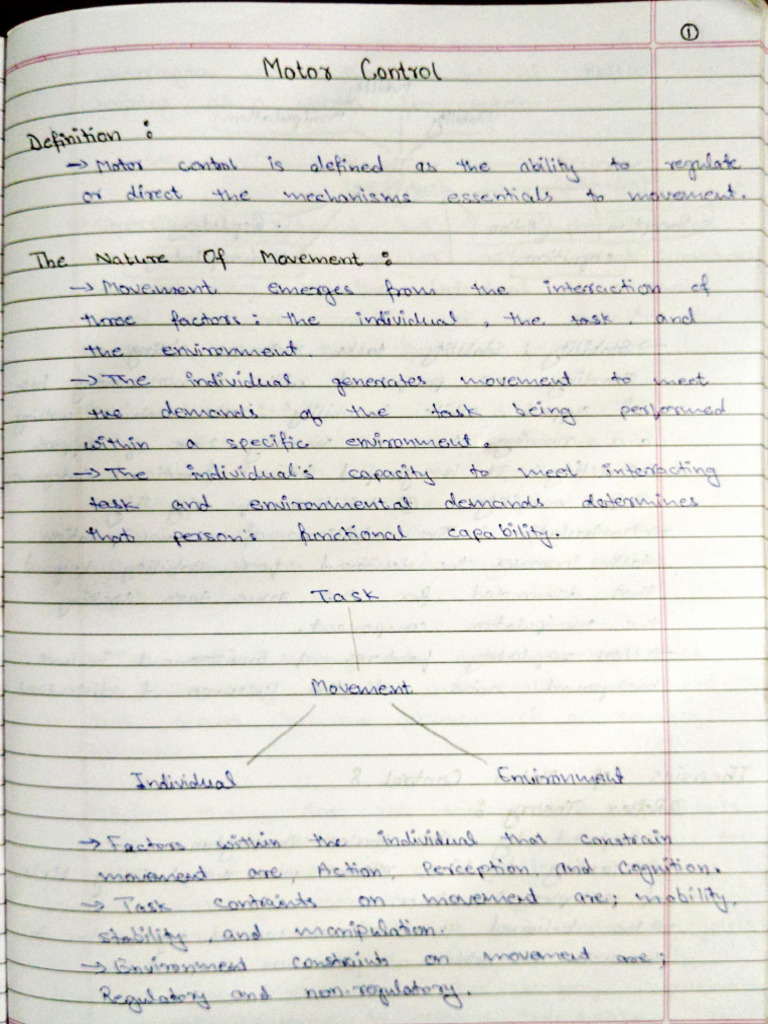 ①
Motor Control
Definition :
→ Motor control is defined as the ability to regulate
or direct the mechanisms essentials to movement.
The Nature Of Movement :
→ Movement emerges from the interaction of
three factors: the individual, the task, and
the environment.
→ The individual generates movement to meet
the demands of the task being performed
within a specific environment.
→ The individual's capacity to meet interacting
task and environmental demands determines
that person's functional capability.
Task
Movement
Individual Environment
→ Factors within the individual that constrain
movement are, Action, Perception and Cognition.
→ Task contraints on movement are; mobility,
stability, and manipulation.
→ Environment constraints on movement are;
Regulatory and non-regulatory.